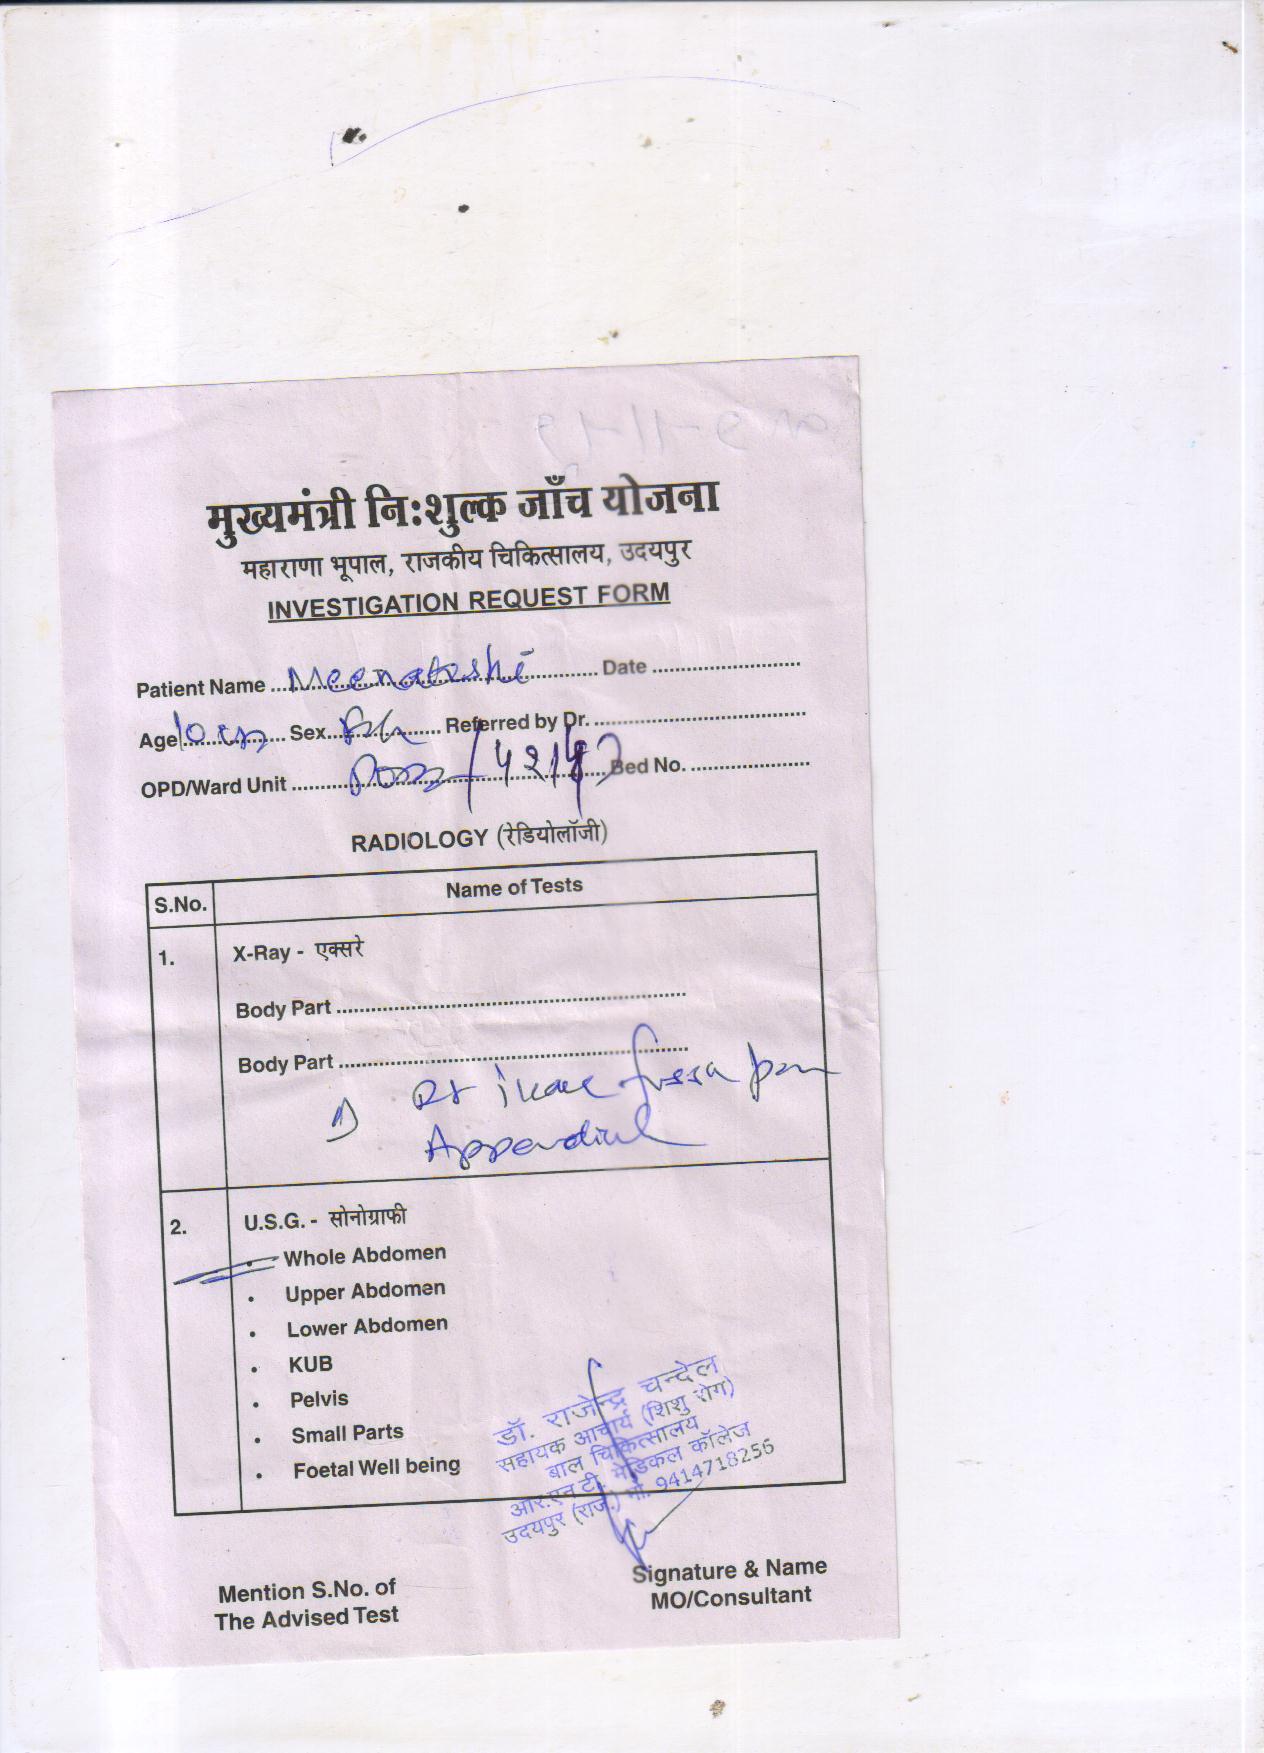 मुख्यमंत्री नि:शुल्क जाँच योजना
महाराणा भूपाल, राजकीय चिकित्सालय, उदयपुर
INVESTIGATION REQUEST FORM
Patient Name Meenakshi Date
Age 10 Sex Referred by Dr.
OPD/Ward Unit Bed No.
RADIOLOGY (रेडियोलॉजी)
S.No. Name of Tests
1. X-Ray - एक्सरे
Body Part
Body Part
Rt fossa
2. U.S.G. - सोनोग्राफी
Whole Abdomen
• Upper Abdomen
• Lower Abdomen
• KUB
• Pelvis
• Small Parts
• Foetal Well being
डॉ. राजेन्द्र चन्देल
सहायक आचार्य (शिशु रोग)
बाल चिकित्सालय
आर.एन.टी. मेडिकल कॉलेज
उदयपुर (राज.) मो. 9414718256
Mention S.No. of
The Advised Test
Signature & Name
MO/Consultant